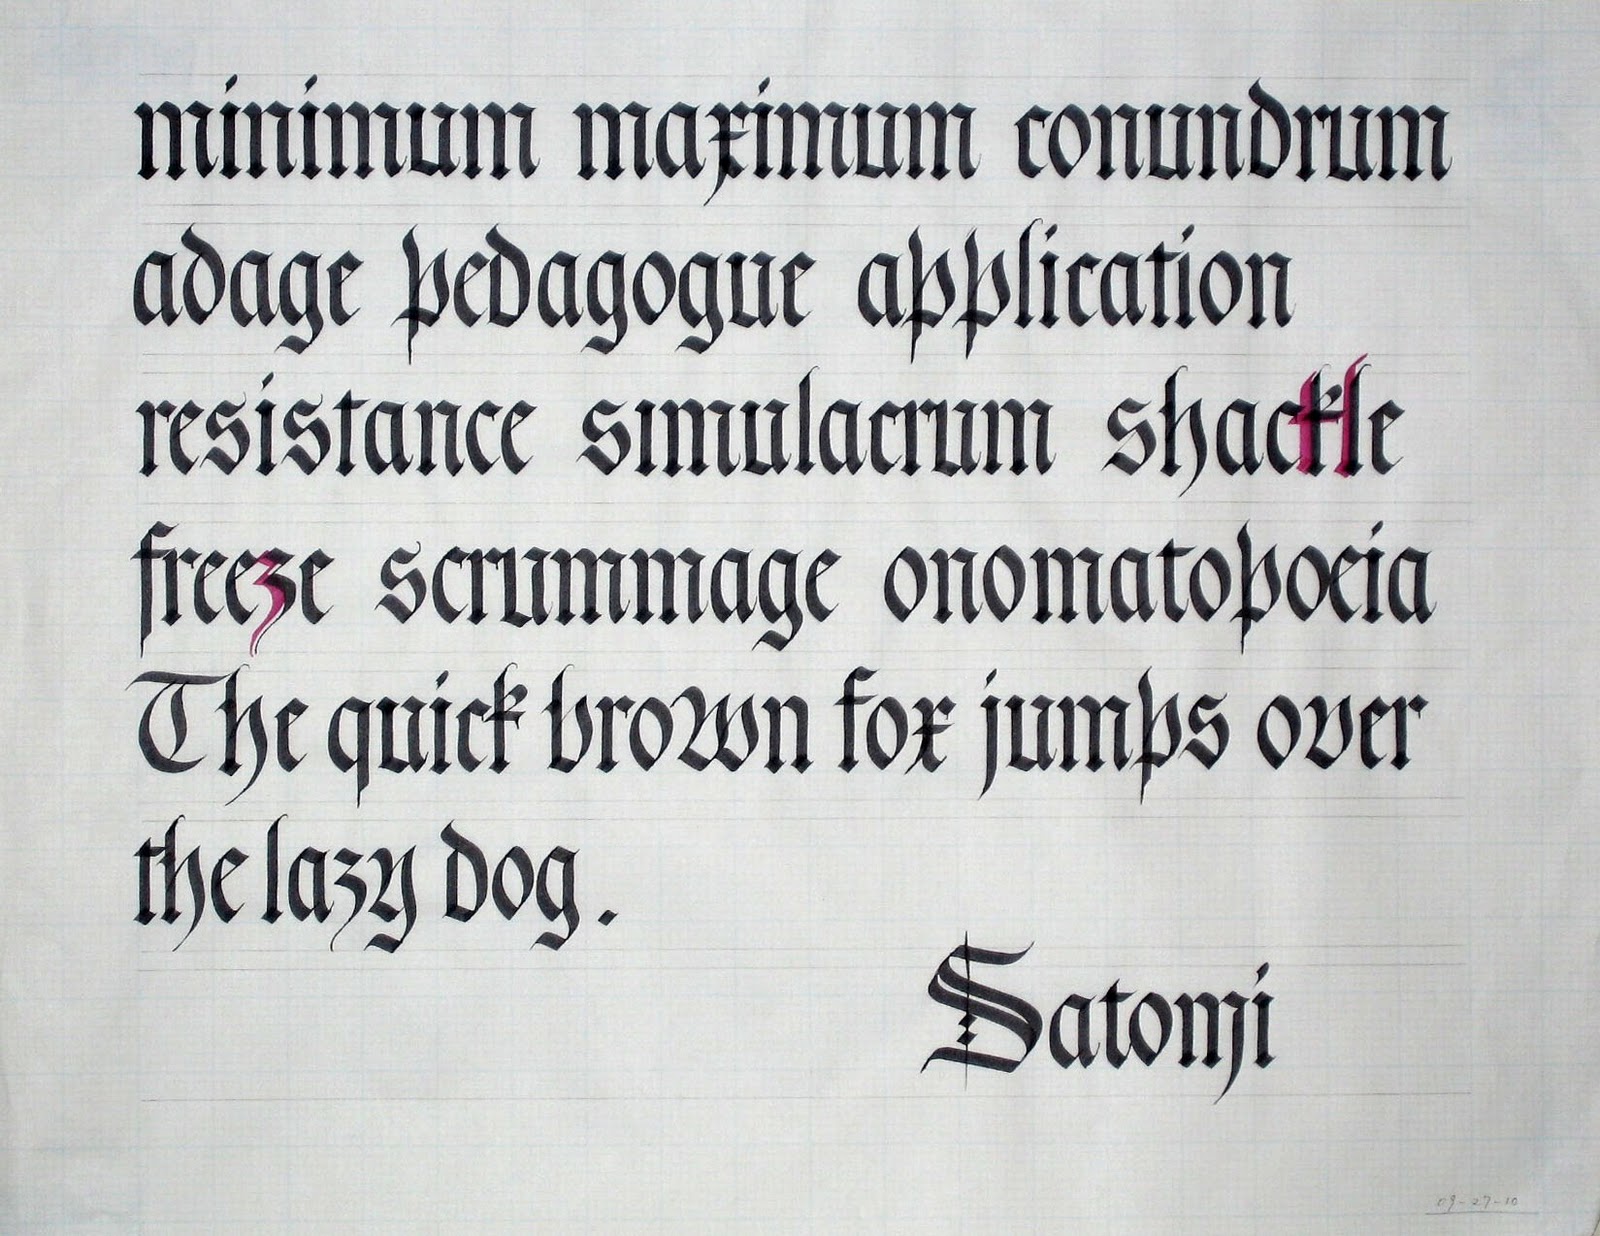 minimum maximum conundrum
adage pedagogue application
resistance simulacrum shackle
freeze scrummage onomatopoeia
The quick brown fox jumps over
the lazy dog.
Satomi
09-27-10